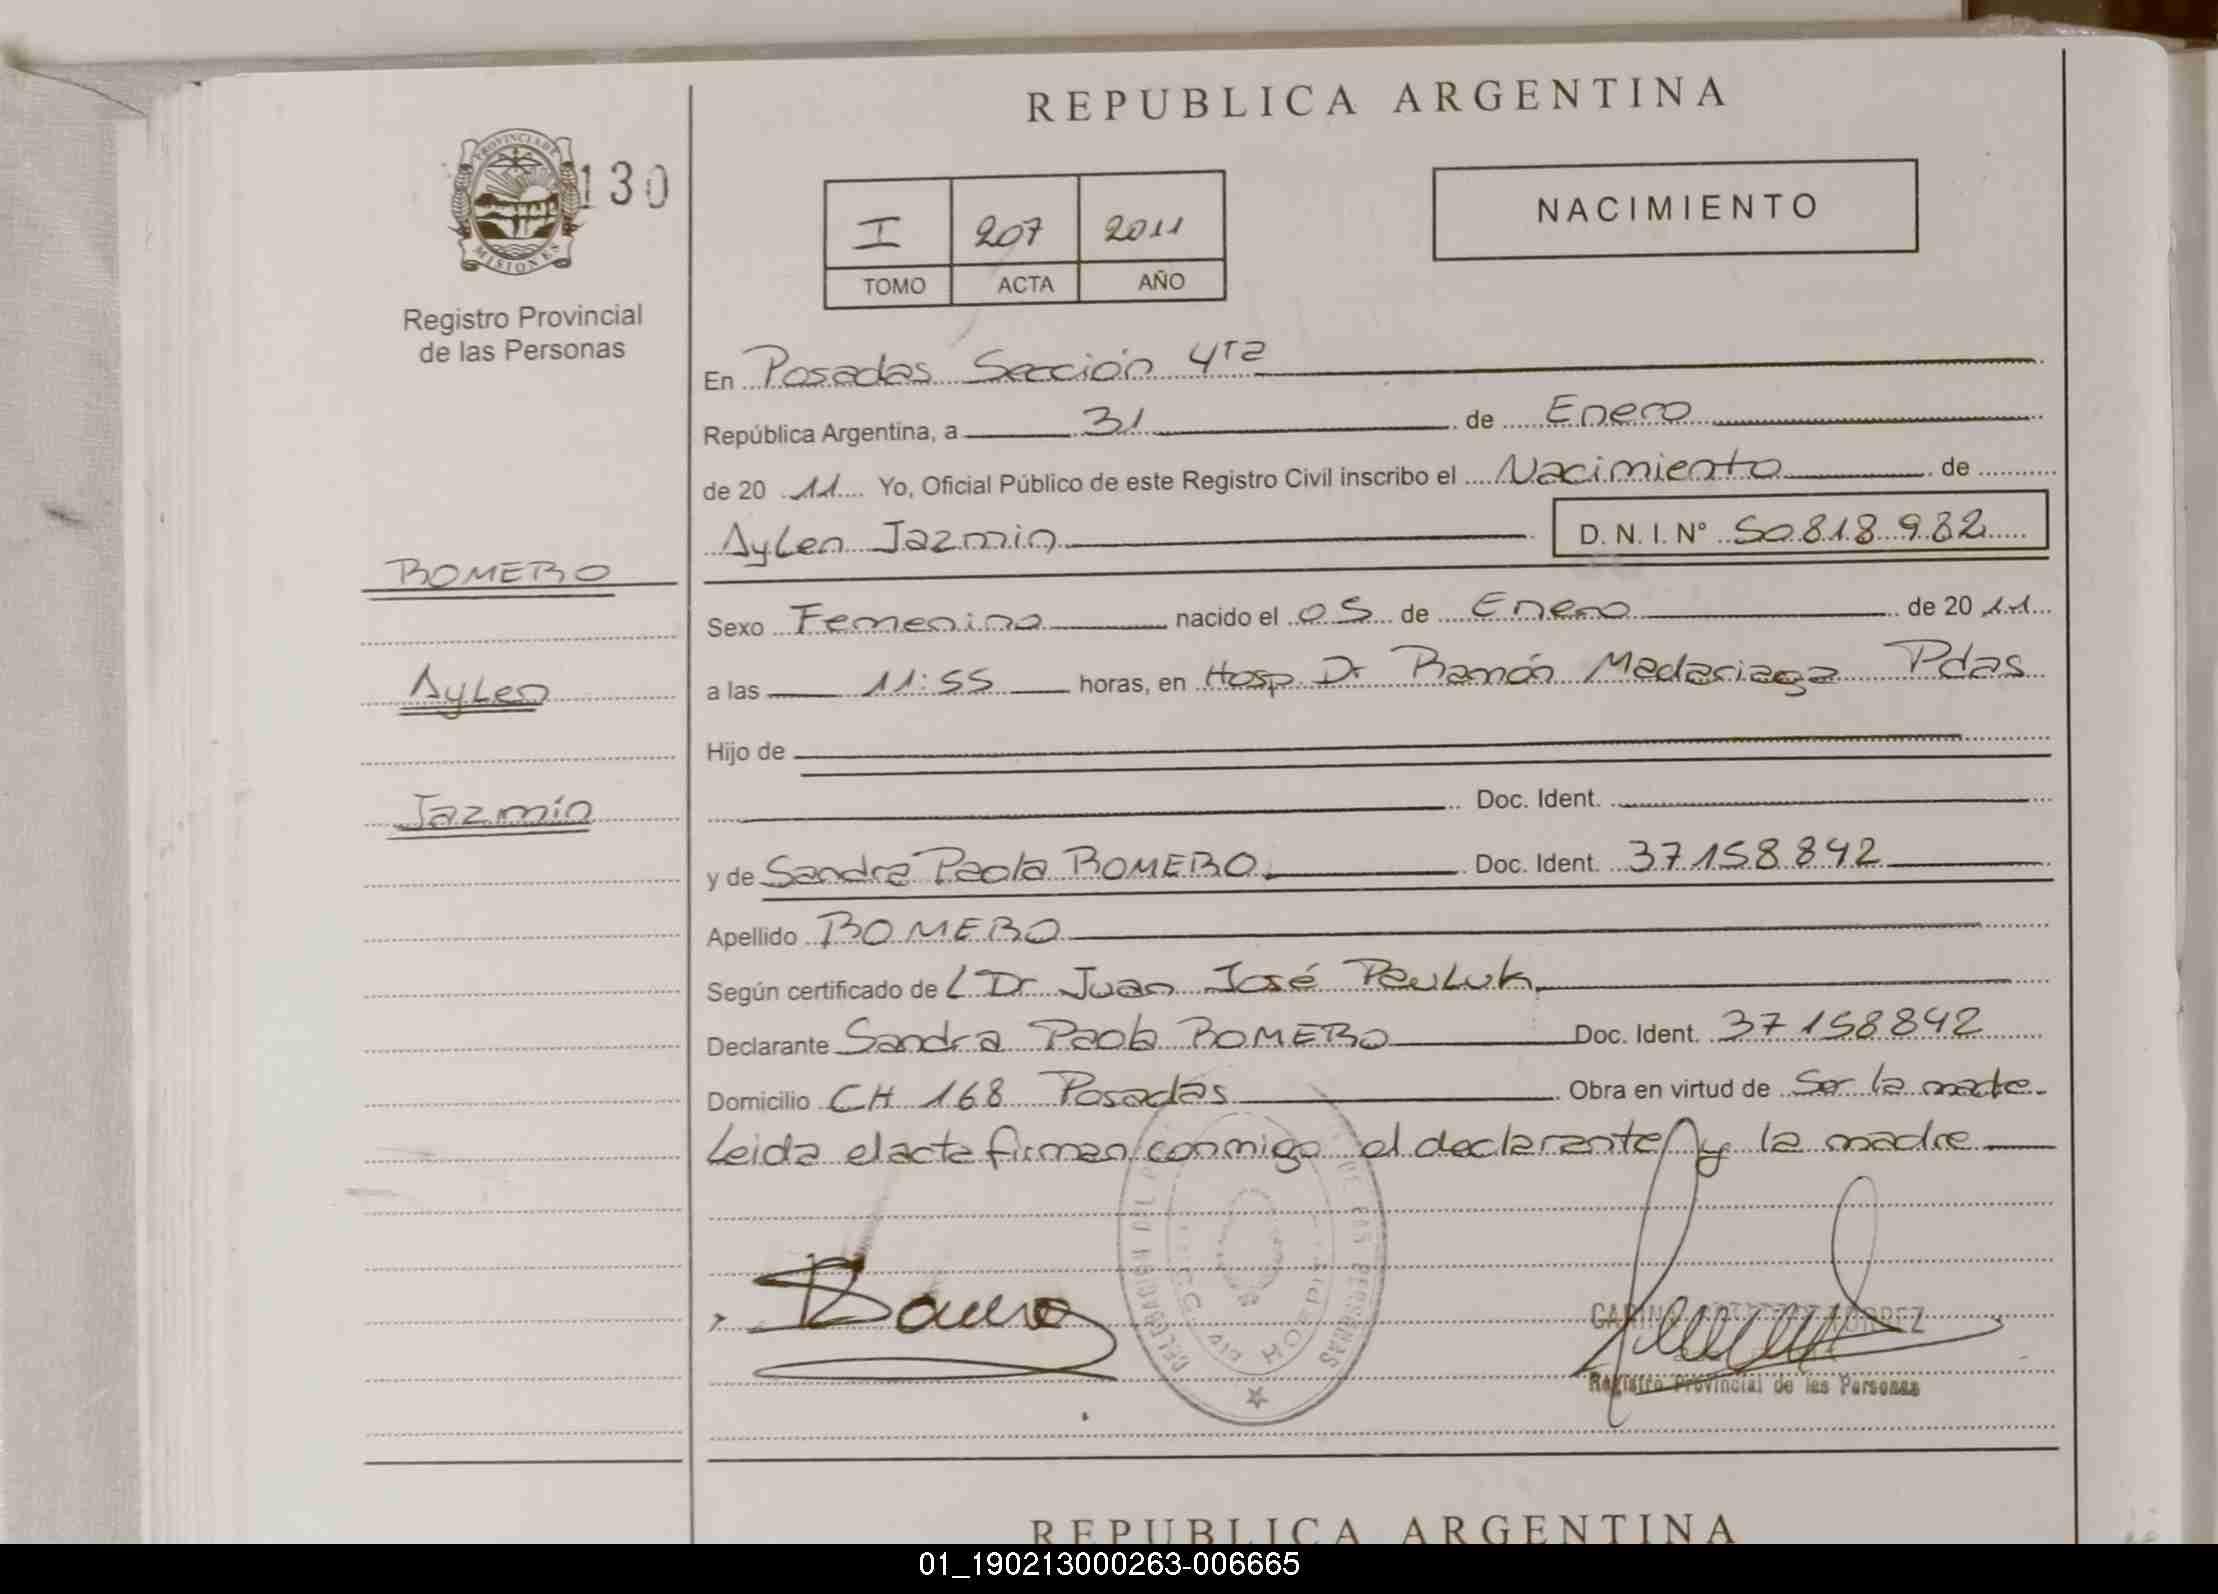 REPUBLICA ARGENTINA
PROVINCIA DE
MISIONES
130
Registro Provincial
de las Personas
I 207 2011
TOMO ACTA AÑO
NACIMIENTO
En Posadas Sección 4ta
República Argentina, a 31 de Enero
de 20 11 Yo, Oficial Público de este Registro Civil inscribo el Nacimiento de
Aylen Jazmin D. N. I. Nº 50818982
ROMERO
Aylen
Jazmín
Sexo Femenino nacido el 05 de Enero de 20 11
a las 11:55 horas, en Hosp. Dr Ramón Madariaga Pdas
Hijo de
Doc. Ident.
y de Sandra Paola ROMERO Doc. Ident. 37158842
Apellido ROMERO
Según certificado de L Dr Juan José Pauluk
Declarante Sandra Paola ROMERO Doc. Ident. 37158842
Domicilio CH 168 Posadas Obra en virtud de Ser la madre
Leida el acta firman conmigo el declarante y la madre
Registro Provincial de las Personas
REPUBLICA ARGENTINA
01_190213000263-006665